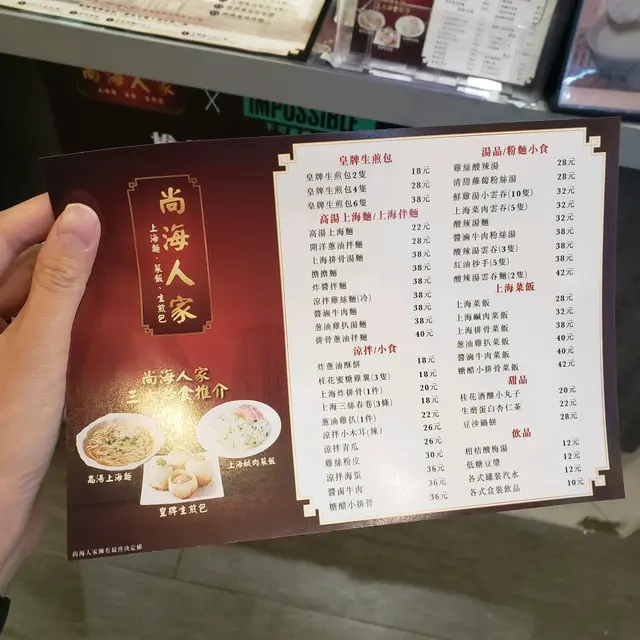 尚海人家
X
IMPOSSIBLE
尚海人家
上海麵、菜飯、生煎包
尚海人家
高湯上海麵
上海鹹肉菜飯
皇牌生煎包
尚海人家擁有最終決定權
皇牌生煎包
皇牌生煎包2隻 18元
皇牌生煎包4隻 28元
皇牌生煎包6隻 38元
高湯上海麵/上海伴麵
高湯上海麵 22元
開洋蔥油拌麵 28元
上海排骨湯麵 38元
擔擔麵 38元
炸醬拌麵 38元
涼拌雞絲麵(冷) 38元
醬滷牛肉麵 38元
蔥油雞扒湯麵 38元
排骨蔥油拌麵 40元
涼拌/小食
炸蔥油酥餅 18元
桂花蜜糖雞翼(3隻) 18元
上海炸排骨(1件) 20元
上海三絲春卷(3條) 18元
蔥油雞扒(1件) 22元
涼拌小木耳(辣) 26元
涼拌青瓜 26元
雞絲粉皮 30元
涼拌海蜇 36元
醬滷牛肉 36元
糖醋小排骨 36元
湯品/粉麵小食
雞絲酸辣湯 28元
清甜蘿蔔粉絲湯 28元
鮮雞湯小雲吞(10隻) 32元
上海菜肉雲吞(5隻) 32元
酸辣湯麵 32元
醬滷牛肉粉絲湯 38元
酸辣湯雲吞(3隻) 38元
紅油抄手(5隻) 38元
酸辣湯雲吞麵(2隻) 42元
上海菜飯
上海菜飯 28元
上海鹹肉菜飯 32元
上海排骨菜飯 38元
蔥油雞扒菜飯 40元
醬滷牛肉菜飯 40元
糖醋小排骨菜飯 42元
甜品
桂花酒釀小丸子 20元
生磨蛋白杏仁茶 22元
豆沙鍋餅 28元
飲品
柑桔酸梅湯 12元
低糖豆漿 12元
各式罐裝汽水 12元
各式盒裝飲品 10元